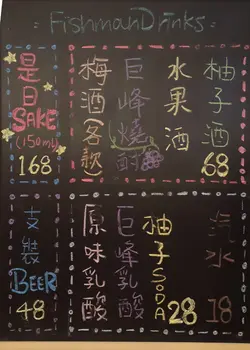 Fishman Drinks:
是日
SAKE
(150ml)
168
梅酒(各款)
巨峰燒酎
水果酒
柚子酒
68
支裝
BEER
48
原味乳酸
巨峰乳酸
柚子SODA
28
汽水
18